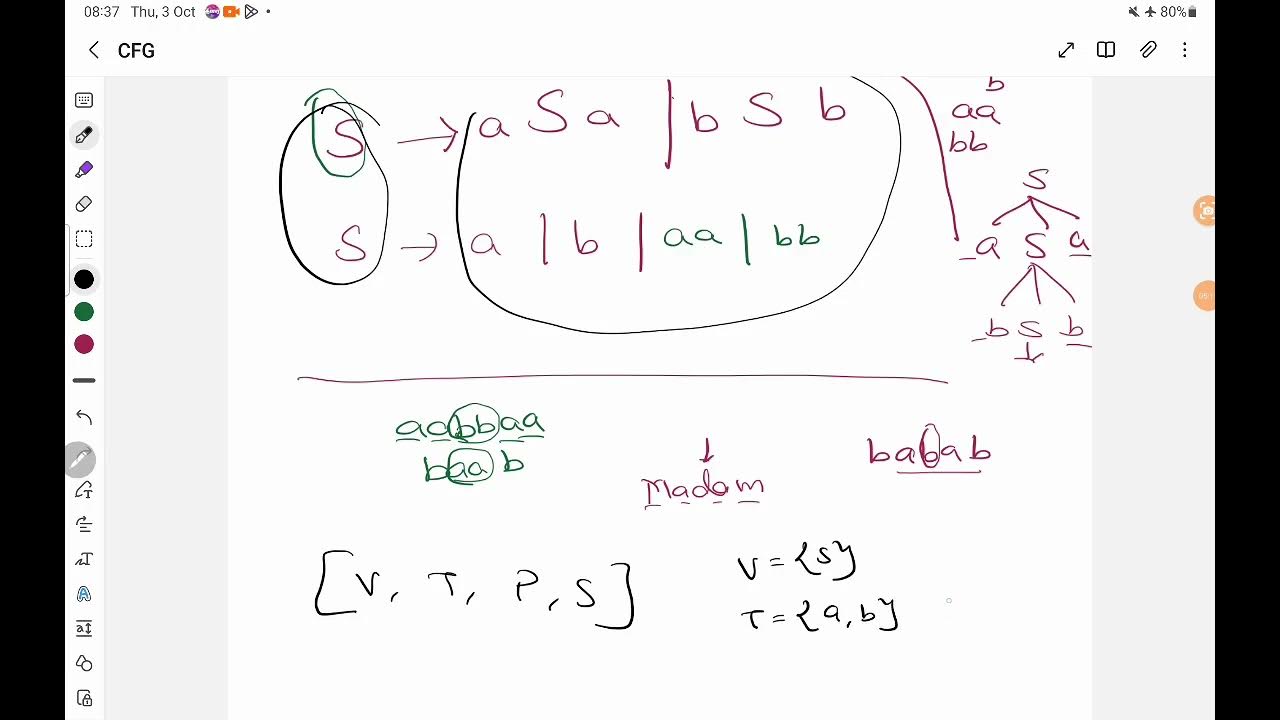 08:37 Thu, 3 Oct
80%
CFG
S → a S a | b S b
S → a | b | aa | bb
b
aa
bb
S
a S a
b S b
aabbaa
baab
Madam
babab
[V, T, P, S]
V = {S}
T = {a, b}